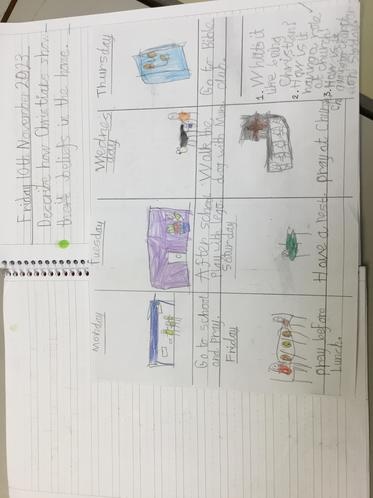 Friday 10th November 2023
Describe how Christians show
there beliefs in the home.
Monday
Tuesday
Wednes
day
Thursday
Go to school
and pray.
After school
play with lego.
Walk the
dog with Mum
Go for Bible
club.
Friday
Saturday
pray before
Lunch.
Have a rest
pray at Church
1. What is it
like being
Christian?
2. How is it
having a role
at church?
3. How is